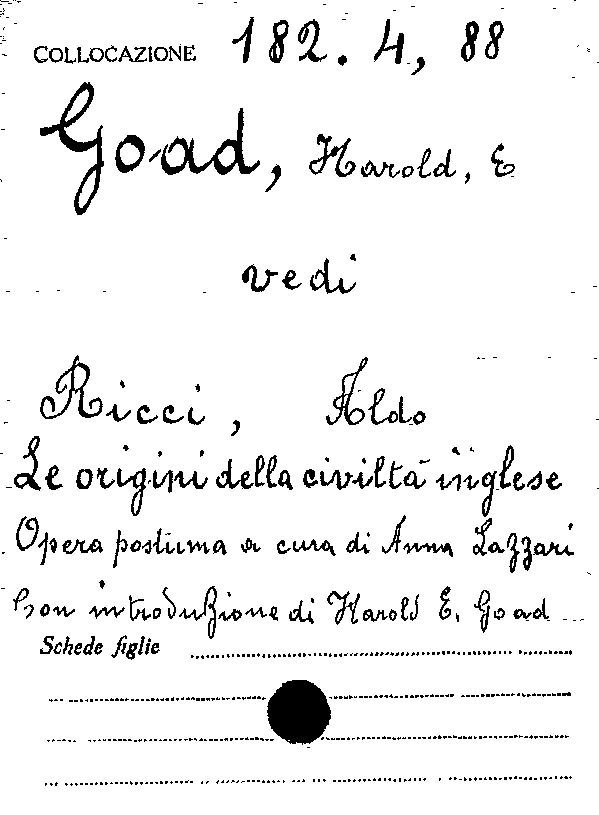 COLLOCAZIONE 182. 4, 88
Goad, Harold, E
vedi
Ricci, Aldo
Le origini della civiltà inglese
Opera postuma a cura di Anna Lazzari
Con introduzione di Harold E. Goad
Schede figlie